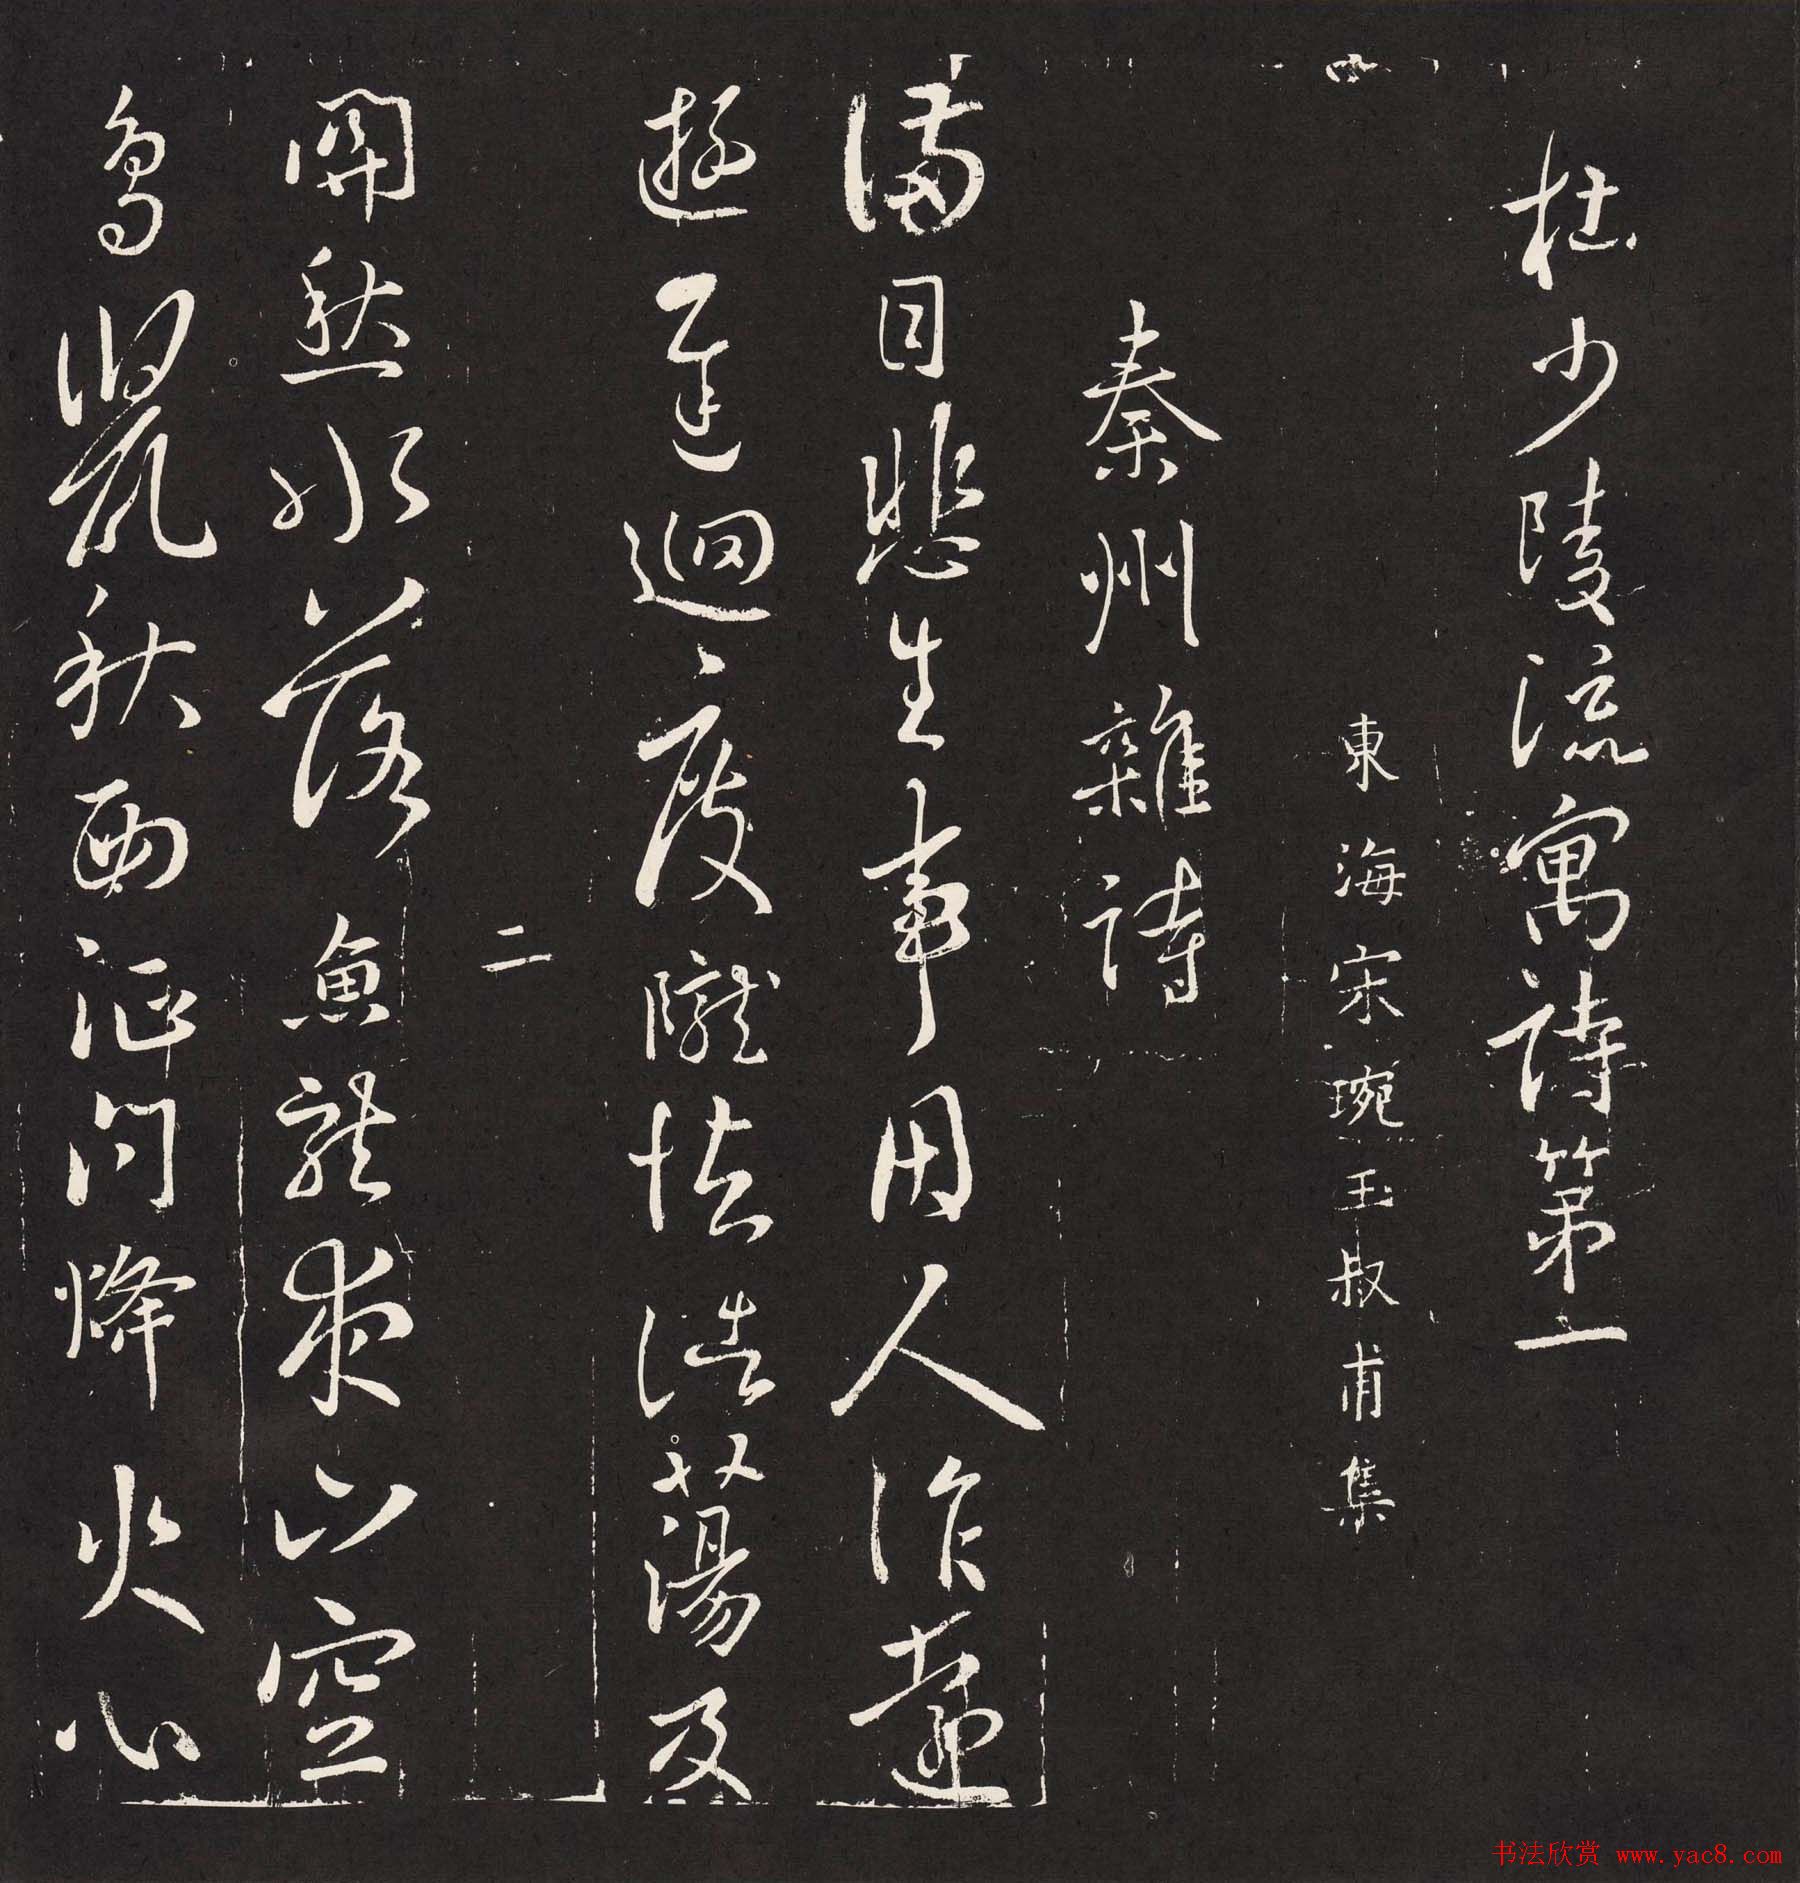 杜少陵流寓詩第一
東海宋琬玉叔甫集
秦州雜詩
滿目悲生事因人作遠
遊遲迴度隴怯浩蕩及
關愁水落魚龍夜山空
二
鳥鼠秋西征問烽火心
书法欣赏 www.yac8.com